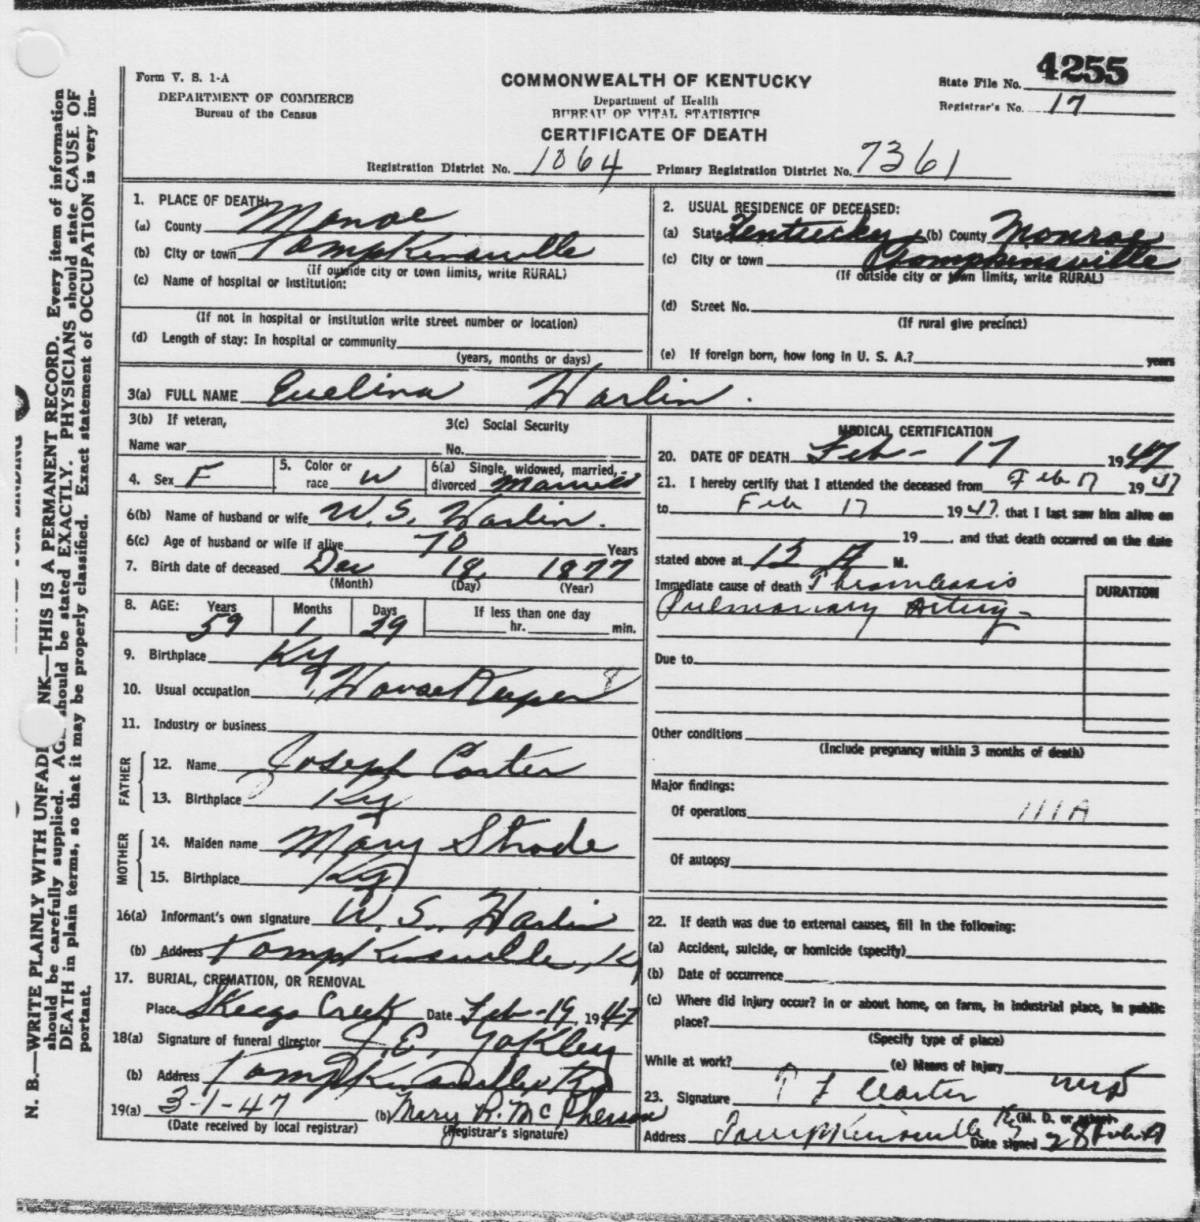 Form V. S. 1-A
DEPARTMENT OF COMMERCE
Bureau of the Census
COMMONWEALTH OF KENTUCKY
Department of Health
BUREAU OF VITAL STATISTICS
CERTIFICATE OF DEATH
State File No. 4255
Registrar's No. 17
Registration District No. 1064 Primary Registration District No. 7361
1. PLACE OF DEATH:
(a) County Monroe
(b) City or town Tompkinsville
(If outside city or town limits, write RURAL)
(c) Name of hospital or institution:
(If not in hospital or institution write street number or location)
(d) Length of stay: In hospital or community
(years, months or days)
2. USUAL RESIDENCE OF DECEASED:
(a) State Kentucky (b) County Monroe
(c) City or town Tompkinsville
(If outside city or town limits, write RURAL)
(d) Street No.
(If rural give precinct)
(e) If foreign born, how long in U. S. A.? years
3(a) FULL NAME Evelina Harlin.
3(b) If veteran,
Name war
3(c) Social Security
No.
4. Sex F
5. Color or
race W
6(a) Single, widowed, married,
divorced Married
6(b) Name of husband or wife W. S. Harlin.
6(c) Age of husband or wife if alive 70 Years
7. Birth date of deceased Dec 18 1877
(Month) (Day) (Year)
8. AGE: Years Months Days If less than one day
59 1 29 hr. min.
9. Birthplace Ky
10. Usual occupation House Keeper
11. Industry or business
FATHER
12. Name Joseph Carter
13. Birthplace Ky
MOTHER
14. Maiden name Mary Strode
15. Birthplace Ky
16(a) Informant's own signature W. S. Harlin
(b) Address Tompkinsville, Ky
17. BURIAL, CREMATION, OR REMOVAL
Place Skeggs Creek Date Feb-19 1947
18(a) Signature of funeral director J. E. Yokley
(b) Address Tompkinsville Ky
19(a) 3-1-47 (b) Mary R. McPherson
(Date received by local registrar) (Registrar's signature)
MEDICAL CERTIFICATION
20. DATE OF DEATH Feb- 17 1947
21. I hereby certify that I attended the deceased from Feb 17 1947
to Feb 17 1947, that I last saw him alive on
19 , and that death occurred on the date
stated above at 12 A M.
Immediate cause of death Thrombosis
Pulmonary Artery
DURATION
Due to
Other conditions
(Include pregnancy within 3 months of death)
Major findings:
Of operations 111A
Of autopsy
22. If death was due to external causes, fill in the following:
(a) Accident, suicide, or homicide (specify)
(b) Date of occurrence
(c) Where did injury occur? in or about home, on farm, in industrial place, in public
place?
(Specify type of place)
While at work? (e) Means of injury
23. Signature T F Carter MD
(M. D. or other)
Address Tompkinsville Ky Date signed 28 Feb 47
N. B.—WRITE PLAINLY WITH UNFADI NK—THIS IS A PERMANENT RECORD. Every item of information
should be carefully supplied. AGE should be stated EXACTLY. PHYSICIANS should state CAUSE OF
DEATH in plain terms, so that it may be properly classified. Exact statement of OCCUPATION is very im-
portant.